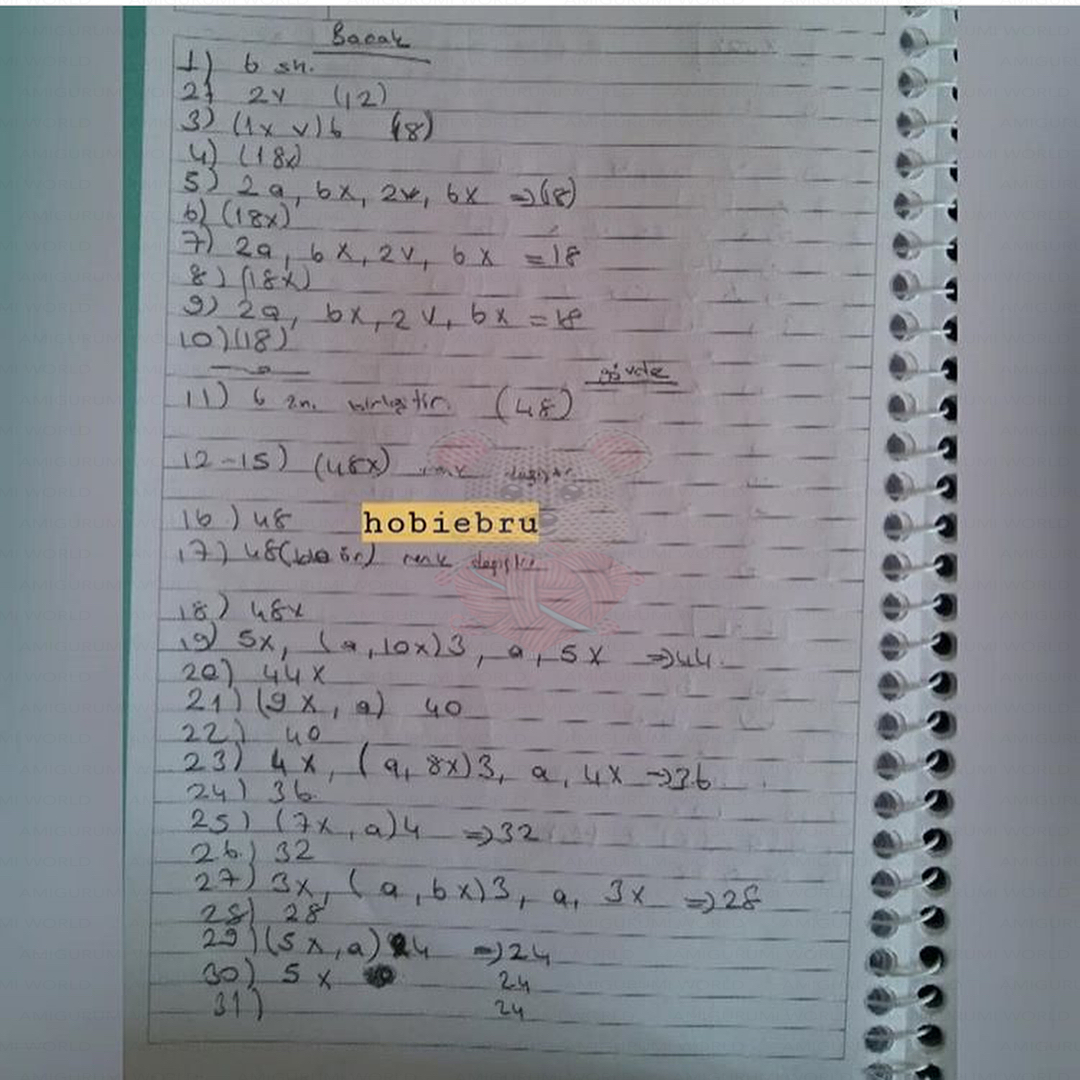 Bacak
1) 6 sh.
2) 2v (12)
3) (1x v)6 (18)
4) (18x)
5) 2a, 6x, 2v, 6x =>(18)
6) (18x)
7) 2a, 6x, 2v, 6x =18
8) (18x)
9) 2a, 6x, 2v, 6x =18
10) (18)
gövde
11) 6 zn. birleştir (48)
12-15) (48x) renk değiştir
16) 48
hobiebru
17) 48 renk değiştir
18) 48x
19) 5x, (a,10x)3, a, 5x =>44
20) 44x
21) (9x, a) 40
22) 40
23) 4x, (a, 8x)3, a, 4x ->36
24) 36
25) (7x, a)4 =>32
26) 32
27) 3x, (a, 6x)3, a, 3x =>28
28) 28
29) (5x, a) 4 =>24
30) 5x 24
31) 24